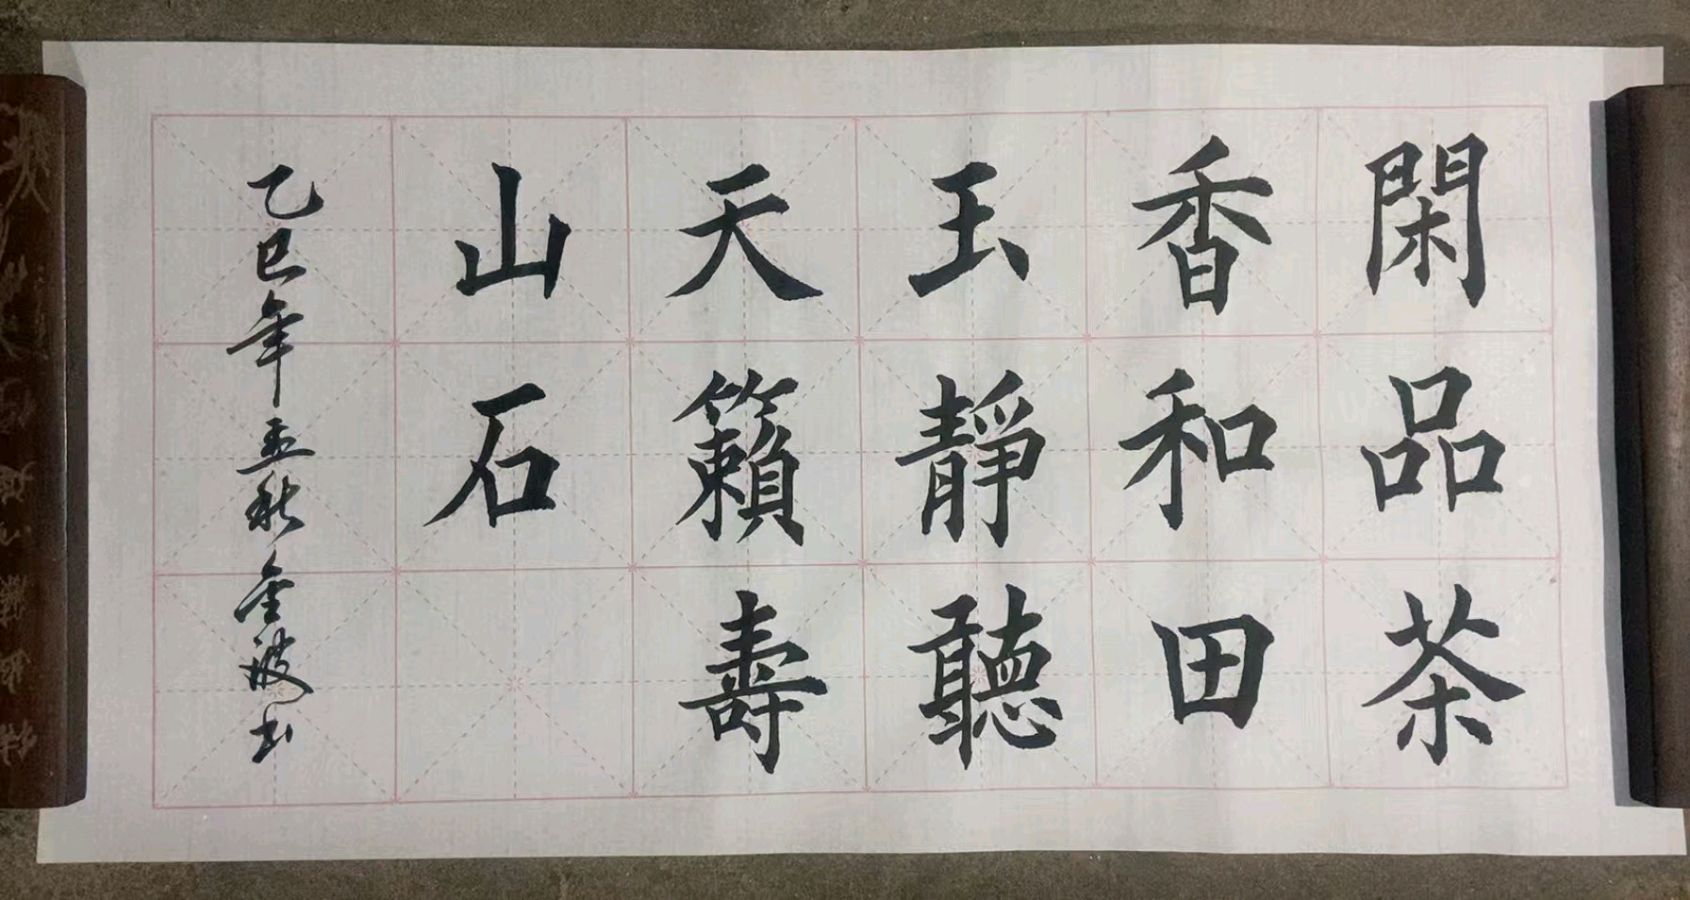 閑品茶
香和田
玉靜聽
天籟壽
山石
乙巳年孟秋金波书